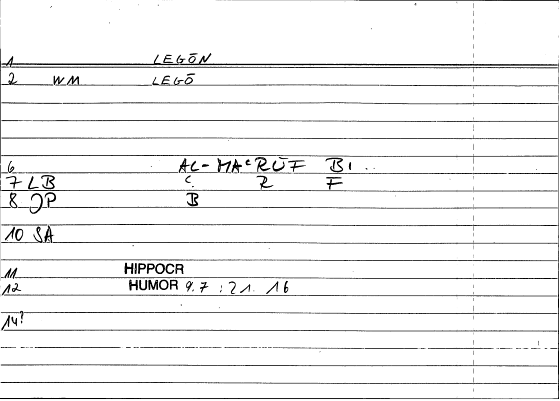 1 LEGŌN
2 WM LEGŌ
6 AL-MAʿRŪF BI..
7 LB ʿ R F
8 JP B
10 SA
11 HIPPOCR
12 HUMOR 9.7 : 21. 16
14?